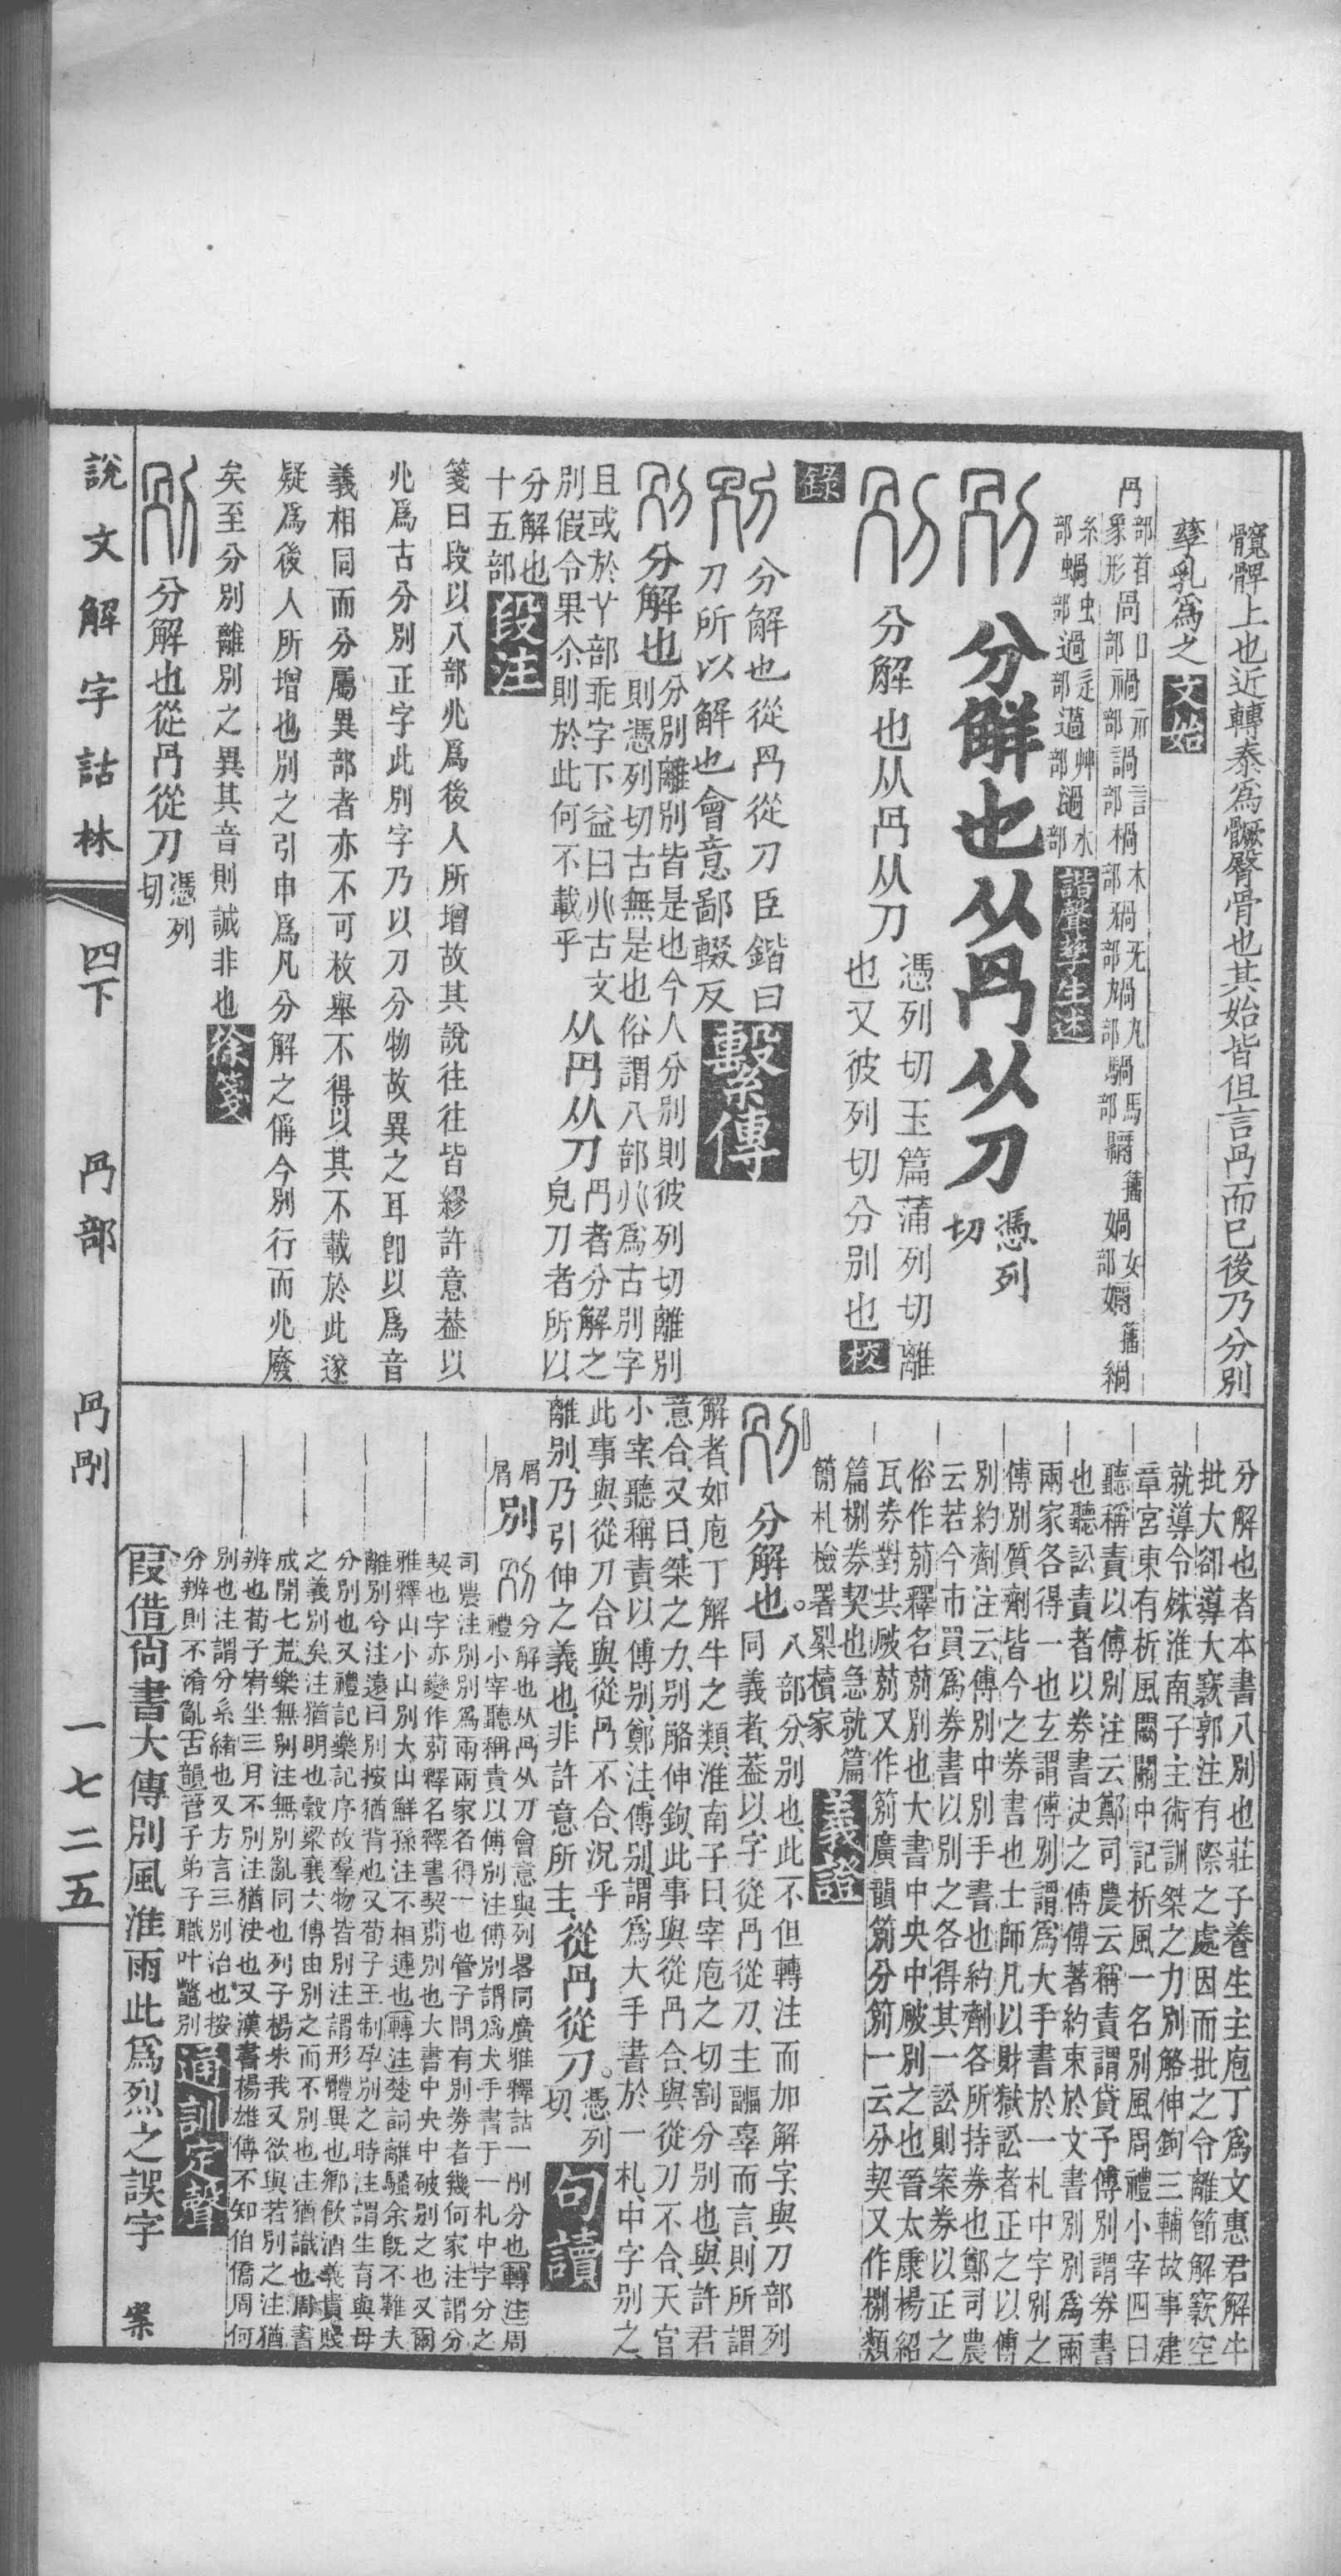 髖髀上也近轉泰爲髂臀骨也其始皆但言冎而已後乃分別
孳乳爲之文始
冎部首象形咼口部禍示部諣言部楇木部𣄸旡部𩨭九部騧馬部䯄籒媧女部㛻籒緺
糸部蝸虫部過辵部薖艸部濄水部諧聲孳生述
分解也从冎从刀憑列切
分解也从冎从刀憑列切玉篇蒲列切離
也又彼列切分別也校
錄
分解也從冎從刀臣鍇曰
刀所以解也會意鄙輟反繫傳
分解也分別離別皆是也今人分別則彼列切離別
則憑列切古無是也俗謂八部㕣爲古別字
且或於丫部乖字下益曰㕣古文
別假令果尒則於此何不載乎从冎从刀冎者分解之
皃刀者所以
分解也
十五部段注
箋曰段以八部㕣爲後人所增故其說往往皆繆許意葢以
㕣爲古分別正字此別字乃以刀分物故異之耳卽以爲音
義相同而分屬異部者亦不可枚舉不得以其不載於此遂
疑爲後人所增也別之引申爲凡分解之偁今別行而㕣廢
矣至分別離別之異其音則誠非也徐箋
分解也從冎從刀憑列切
分解也者本書八別也莊子養生主庖丁爲文惠君解牛
批大卻導大窾郭注有際之處因而批之令離節解窾空
就導令殊淮南子主術訓桀之力別觡伸鉤三輔故事建
章宮東有析風闕關中記析風一名別風周禮小宰四曰
聽稱責以傅別注云鄭司農云稱責謂貸予傅別謂券書
也聽訟責者以券書決之傅傅著約束於文書別別爲兩
兩家各得一也玄謂傅別謂爲大手書於一札中字別之
傅別質劑皆今之券書也士師凡以財獄訟者正之以傅
別約劑注云傅別中別手書也約劑各所持券也鄭司農
云若今市買爲券書以別之各得其一訟則案券以正之
俗作莂釋名莂別也大書中央中破別之也晉太康楊紹
瓦券對共破莂又作䇷廣韻䇷分䇷一云分契又作㭭類
篇㭭券契也急就篇
簡札檢署槧牘家義證
分解也。八部分、別也、此不但轉注而加解字、與刀部列
同義者、葢以字從冎從刀、主諞辜而言、則所謂
解者、如庖丁解牛之類、淮南子曰、宰庖之切割分別也、與許君
意合、又曰、桀之力、別觡伸鉤、此事與從冎合、與從刀不合、天官
小宰、聽稱責以傅別、鄭注、傅別、謂爲大手書於一札、中字別之、
此事與從刀合、與從冎不合、況乎
離別、乃引伸之義也、非許意所主、從冎從刀。憑列切句讀
屑屑別分解也从冎从刀會意與列畧同廣雅釋詁一刐分也轉注周
禮小宰聽稱責以傅別注傅別謂爲大手書于一札中字分之
司農注別別爲兩兩家各得一也管子問有別券者幾何家注謂分
契也字亦變作莂釋名釋書契莂別也大書中央中破別之也又爾
雅釋山小山別大山鮮孫注不相連也轉注楚詞離騷余旣不難夫
離別兮注遠曰別按猶背也又荀子王制孕別之時注謂生育與母
分別也又禮記樂記序故羣物皆別注謂形體異也鄉飲酒義貴賤
之義別矣注猶明也穀梁襄六傳由別之而不別也注猶識也周書
成開七荒樂無別注無別亂同也列子楊朱我又欲與若別之注猶
辨也荀子宥坐三月不別注猶決也又漢書楊雄傳不知伯僑周何
別也注謂分系緒也又方言三別治也按
分辨則不淆亂古韻管子弟子職叶鼈別通訓定聲
假借尚書大傳別風淮雨此爲烈之誤字案
說文解字詁林　四下　冎部　冎剐　一七二五